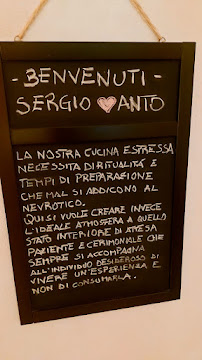 - BENVENUTI -
SERGIO ANTO
LA NOSTRA CUCINA ESPRESSA
NECESSITA DI RITUALITÀ E
TEMPI DI PREPARAZIONE
CHE MAL SI ADDICONO AL
NEVROTICO.
QUI SI VUOLE CREARE INVECE
L'IDEALE ATMOSFERA A QUELLO
STATO INTERIORE DI ATTESA
PAZIENTE E CERIMONIALE CHE
SEMPRE SI ACCOMPAGNA
ALL'INDIVIDUO DESIDEROSO DI
VIVERE UN'ESPERIENZA E
NON DI CONSUMARLA.